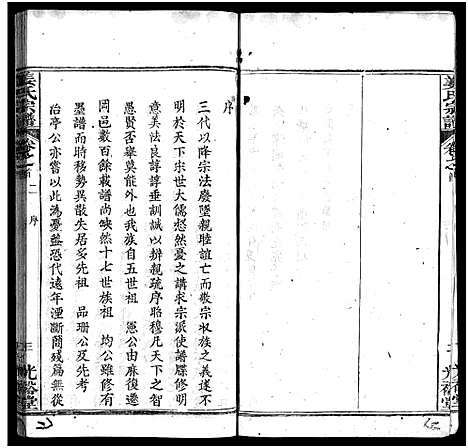 姜氏宗譜
卷之首
光裕堂
序
三代以降宗法廢墜親睦誼亡而敬宗收族之義遂不
明於天下宋世大儒愀然憂之講求宗派使譜牒修明
意美法良諄諄垂訓誠以辨親疏序昭穆凡天下之智
愚賢否舉莫能外也我族自五世祖 愿公由麻復遷
岡邑數百餘載譜尚缺然十七世族祖 均公雖修有
墨譜而時移勢異散失居多先祖 品珊公及先考
治亭公亦嘗以此為憂蓋恐代遠年湮斷簡殘篇無從
姜氏宗譜
卷之首
二 序
光裕堂